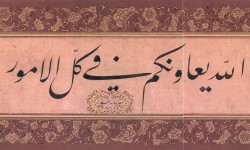 الله يعاونكم في كلّ الامور